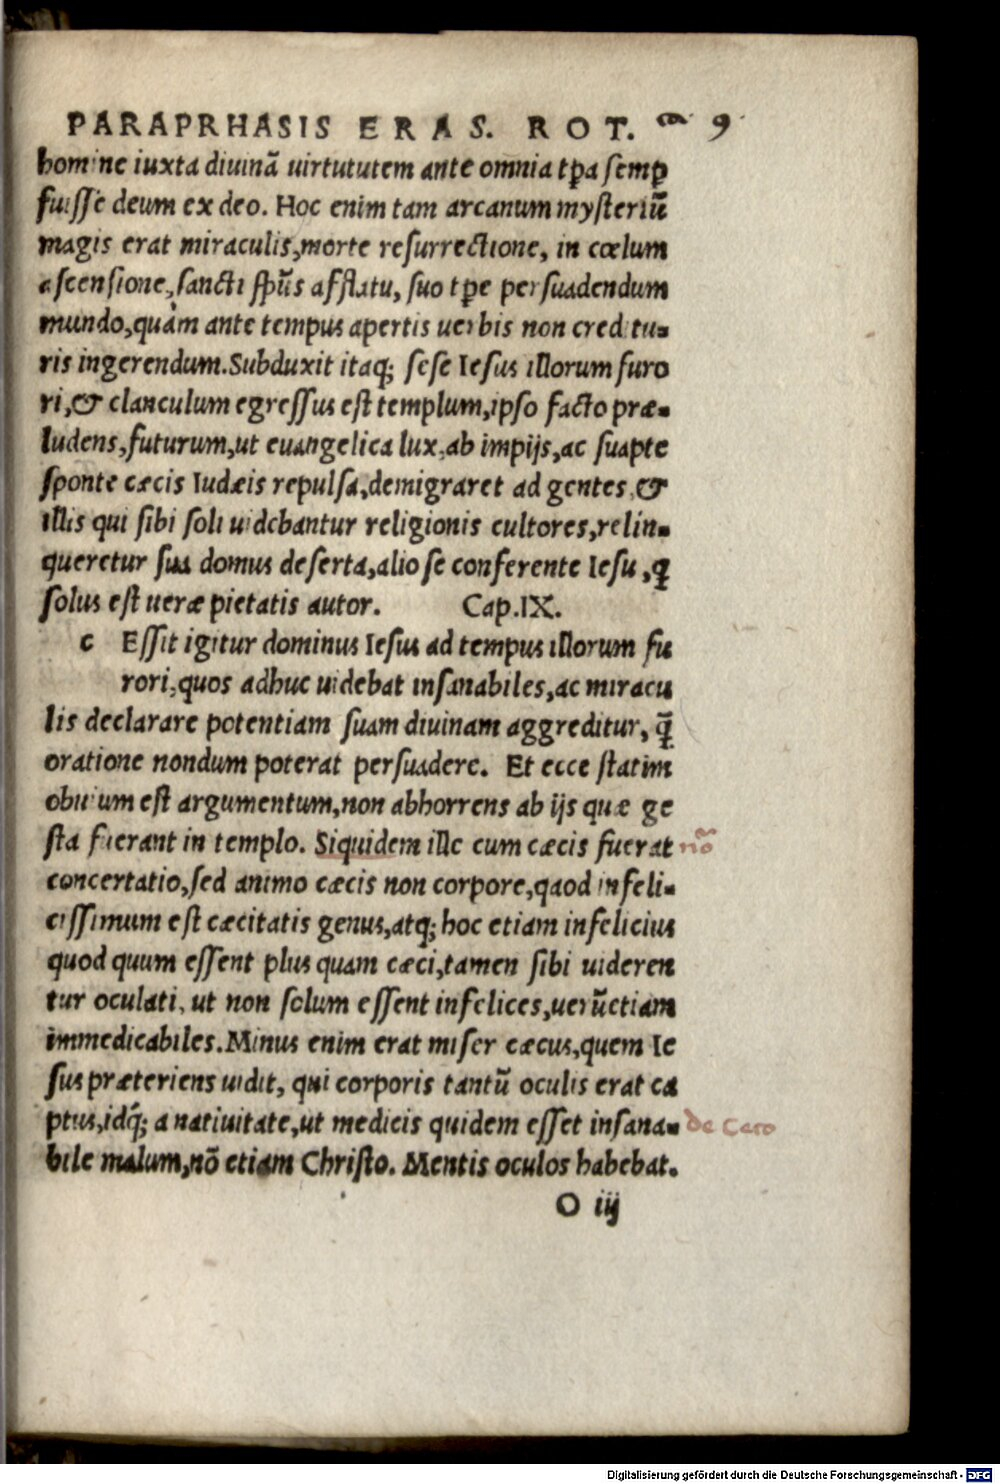 PARAPRHASIS ERAS. ROT. 9
homine iuxta diuinã uirtututem ante omnia tp̱a semp̱
fuisse deum ex deo. Hoc enim tam arcanum mysteriũ
magis erat miraculis, morte resurrectione, in cœlum
ascensione, sancti sp̃us afflatu, suo tp̱e persuadendum
mundo, quàm ante tempus apertis uerbis non creditu-
ris ingerendum. Subduxit itaq; sese Iesus illorum furo
ri, & clanculum egressus est templum, ipso facto præ-
ludens, futurum, ut euangelica lux, ab impijs, ac suapte
sponte cæcis Iudæis repulsa, demigraret ad gentes, &
illis qui sibi soli uidebantur religionis cultores, relin-
queretur sua domus deserta, alio se conferente Iesu, ꝗ
solus est ueræ pietatis autor. Cap. IX.
c Essit igitur dominus Iesus ad tempus illorum fu
rori, quos adhuc uidebat insanabiles, ac miracu
lis declarare potentiam suam diuinam aggreditur, ꝗ̃
oratione nondum poterat persuadere. Et ecce statim
obuium est argumentum, non abhorrens ab ijs quæ ge
sta fuerant in templo. Siquidem ille cum cæcis fuerat
nõ
concertatio, sed animo cæcis non corpore, qaod infeli-
cissimum est cæcitatis genus, atq; hoc etiam infelicius
quod quum essent plus quam cæci, tamen sibi uideren
tur oculati, ut non solum essent infelices, uerũetiam
immedicabiles. Minus enim erat miser cæcus, quem Ie
sus præteriens uidit, qui corporis tantũ oculis erat ca
ptus, idq́; a natiuitate, ut medicis quidem esset insana-
de Caeo
bile malum, nõ etiam Christo. Mentis oculos habebat.
O iij
Digitalisierung gefördert durch die Deutsche Forschungsgemeinschaft - DFG